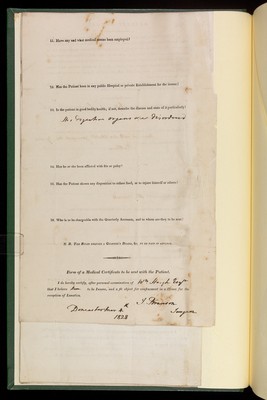 13. Have any and what medical means been employed?
14. Has the Patient been in any public Hospital or private Establishment for the insane?
15. Is the patient in good bodily health; if not, describe the disease and state of it particularly?
the digestive organs are disordered
16. Has he or she been afflicted with fits or palsy?
17. Has the Patient shewn any disposition to injure
18. Who is to be chargeable with the Quarterly Accounts, and to whom are they to be sent?
Form of a Medical Certificate to be sent with the Patient.
I do hereby certify, after personal examination of Wm Haigh Esqr
that I believe him to be Insane, and a fit object for confinement in a House for the
reception of Lunatics.
Surgeon
1828